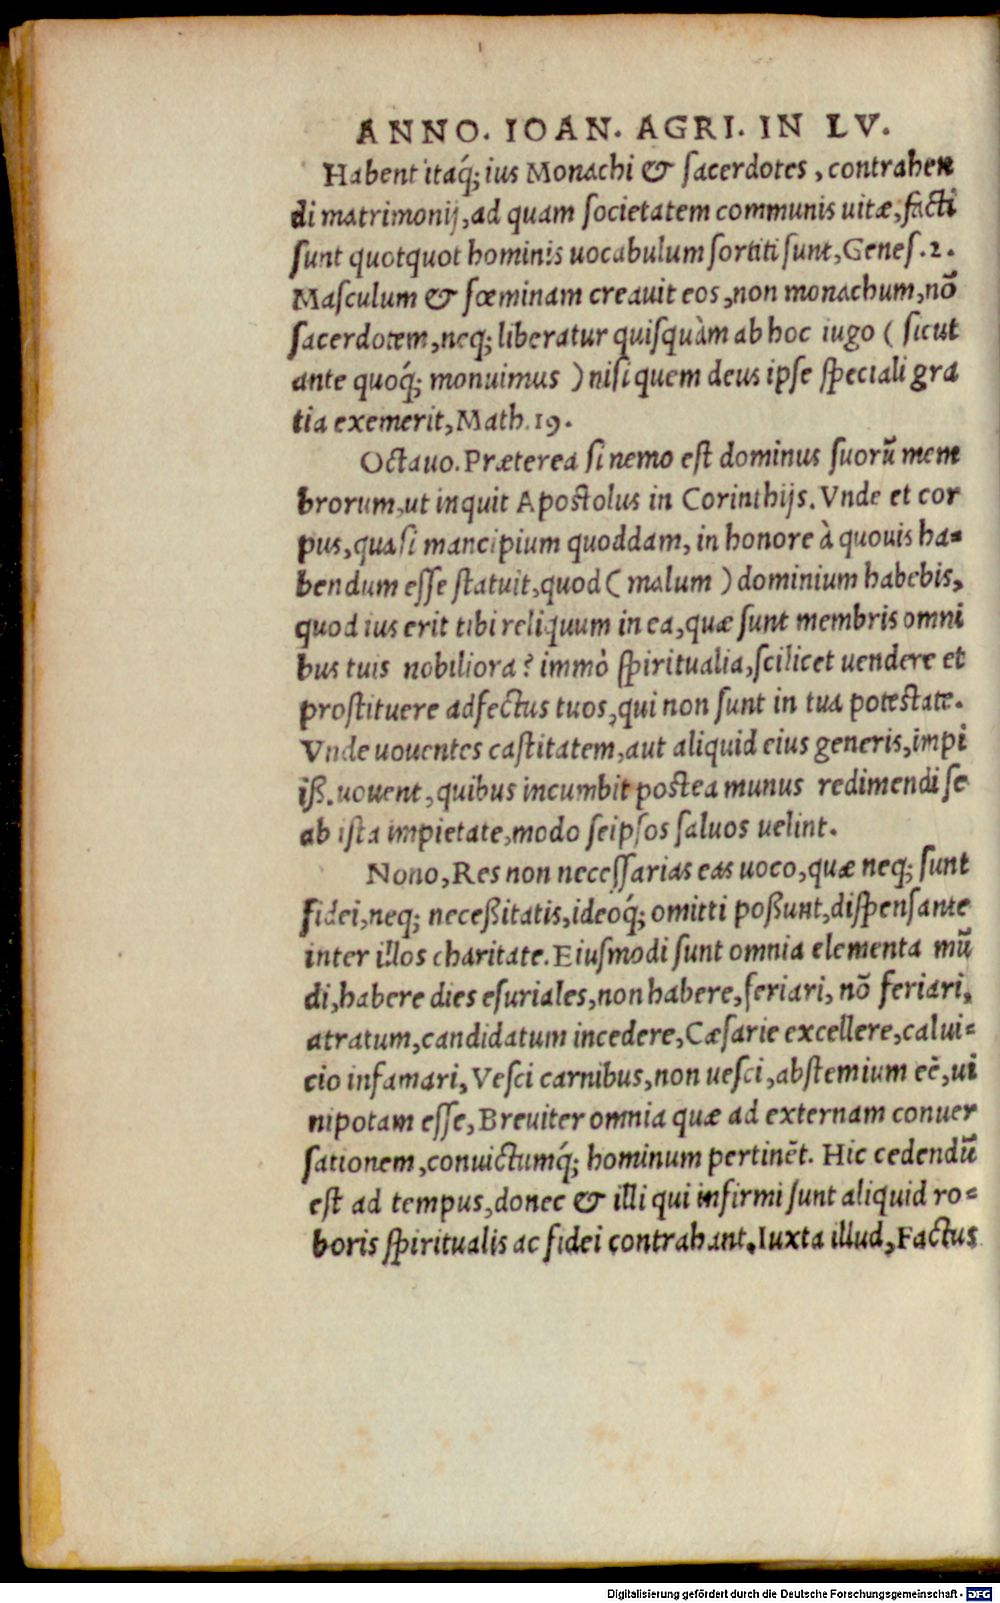 ANNO. IOAN. AGRI. IN LV.
Habent itaq́; ius Monachi & ſacerdotes, contrahen
di matrimonij, ad quam ſocietatem communis uitæ, facti
ſunt quotquot hominis uocabulum ſortiti ſunt, Geneſ. 2.
Maſculum & fœminam creauit eos, non monachum, nō
ſacerdotem, neq; liberatur quiſquàm ab hoc iugo ( ſicut
ante quoq́; monuimus ) niſi quem deus ipſe ſpeciali gra
tia exemerit, Math. 19.
Octauo. Præterea ſi nemo eſt dominus ſuorū mem
brorum, ut inquit Apoſtolus in Corinthijs. Vnde et cor
pus, quaſi mancipium quoddam, in honore à quouis ha=
bendum eſſe ſtatuit, quod ( malum ) dominium habebis,
quod ius erit tibi reliquum in ea, quæ ſunt membris omni
bus tuis nobiliora? immò ſpiritualia, ſcilicet uendere et
proſtituere adfectus tuos, qui non ſunt in tua poteſtate.
Vnde uouentes caſtitatem, aut aliquid eius generis, impi
iß. uouent, quibus incumbit poſtea munus redimendi ſe
ab iſta impietate, modo ſeipſos ſaluos uelint.
Nono, Res non neceſſarias eas uoco, quæ neq; ſunt
fidei, neq; neceßitatis, ideoq́; omitti poßunt, diſpenſante
inter illos charitate. Eiuſmodi ſunt omnia elementa mū
di, habere dies eſuriales, non habere, feriari, nō feriari,
atratum, candidatum incedere, Cæſarie excellere, calui=
cio infamari, Veſci carnibus, non ueſci, abſtemium eē, ui
nipotam eſſe, Breuiter omnia quæ ad externam conuer
ſationem, conuictumq́; hominum pertinēt. Hic cedendū
eſt ad tempus, donec & illi qui infirmi ſunt aliquid ro=
boris ſpiritualis ac fidei contrahant. Iuxta illud, Factus
Digitalisierung gefördert durch die Deutsche Forschungsgemeinschaft - DFG